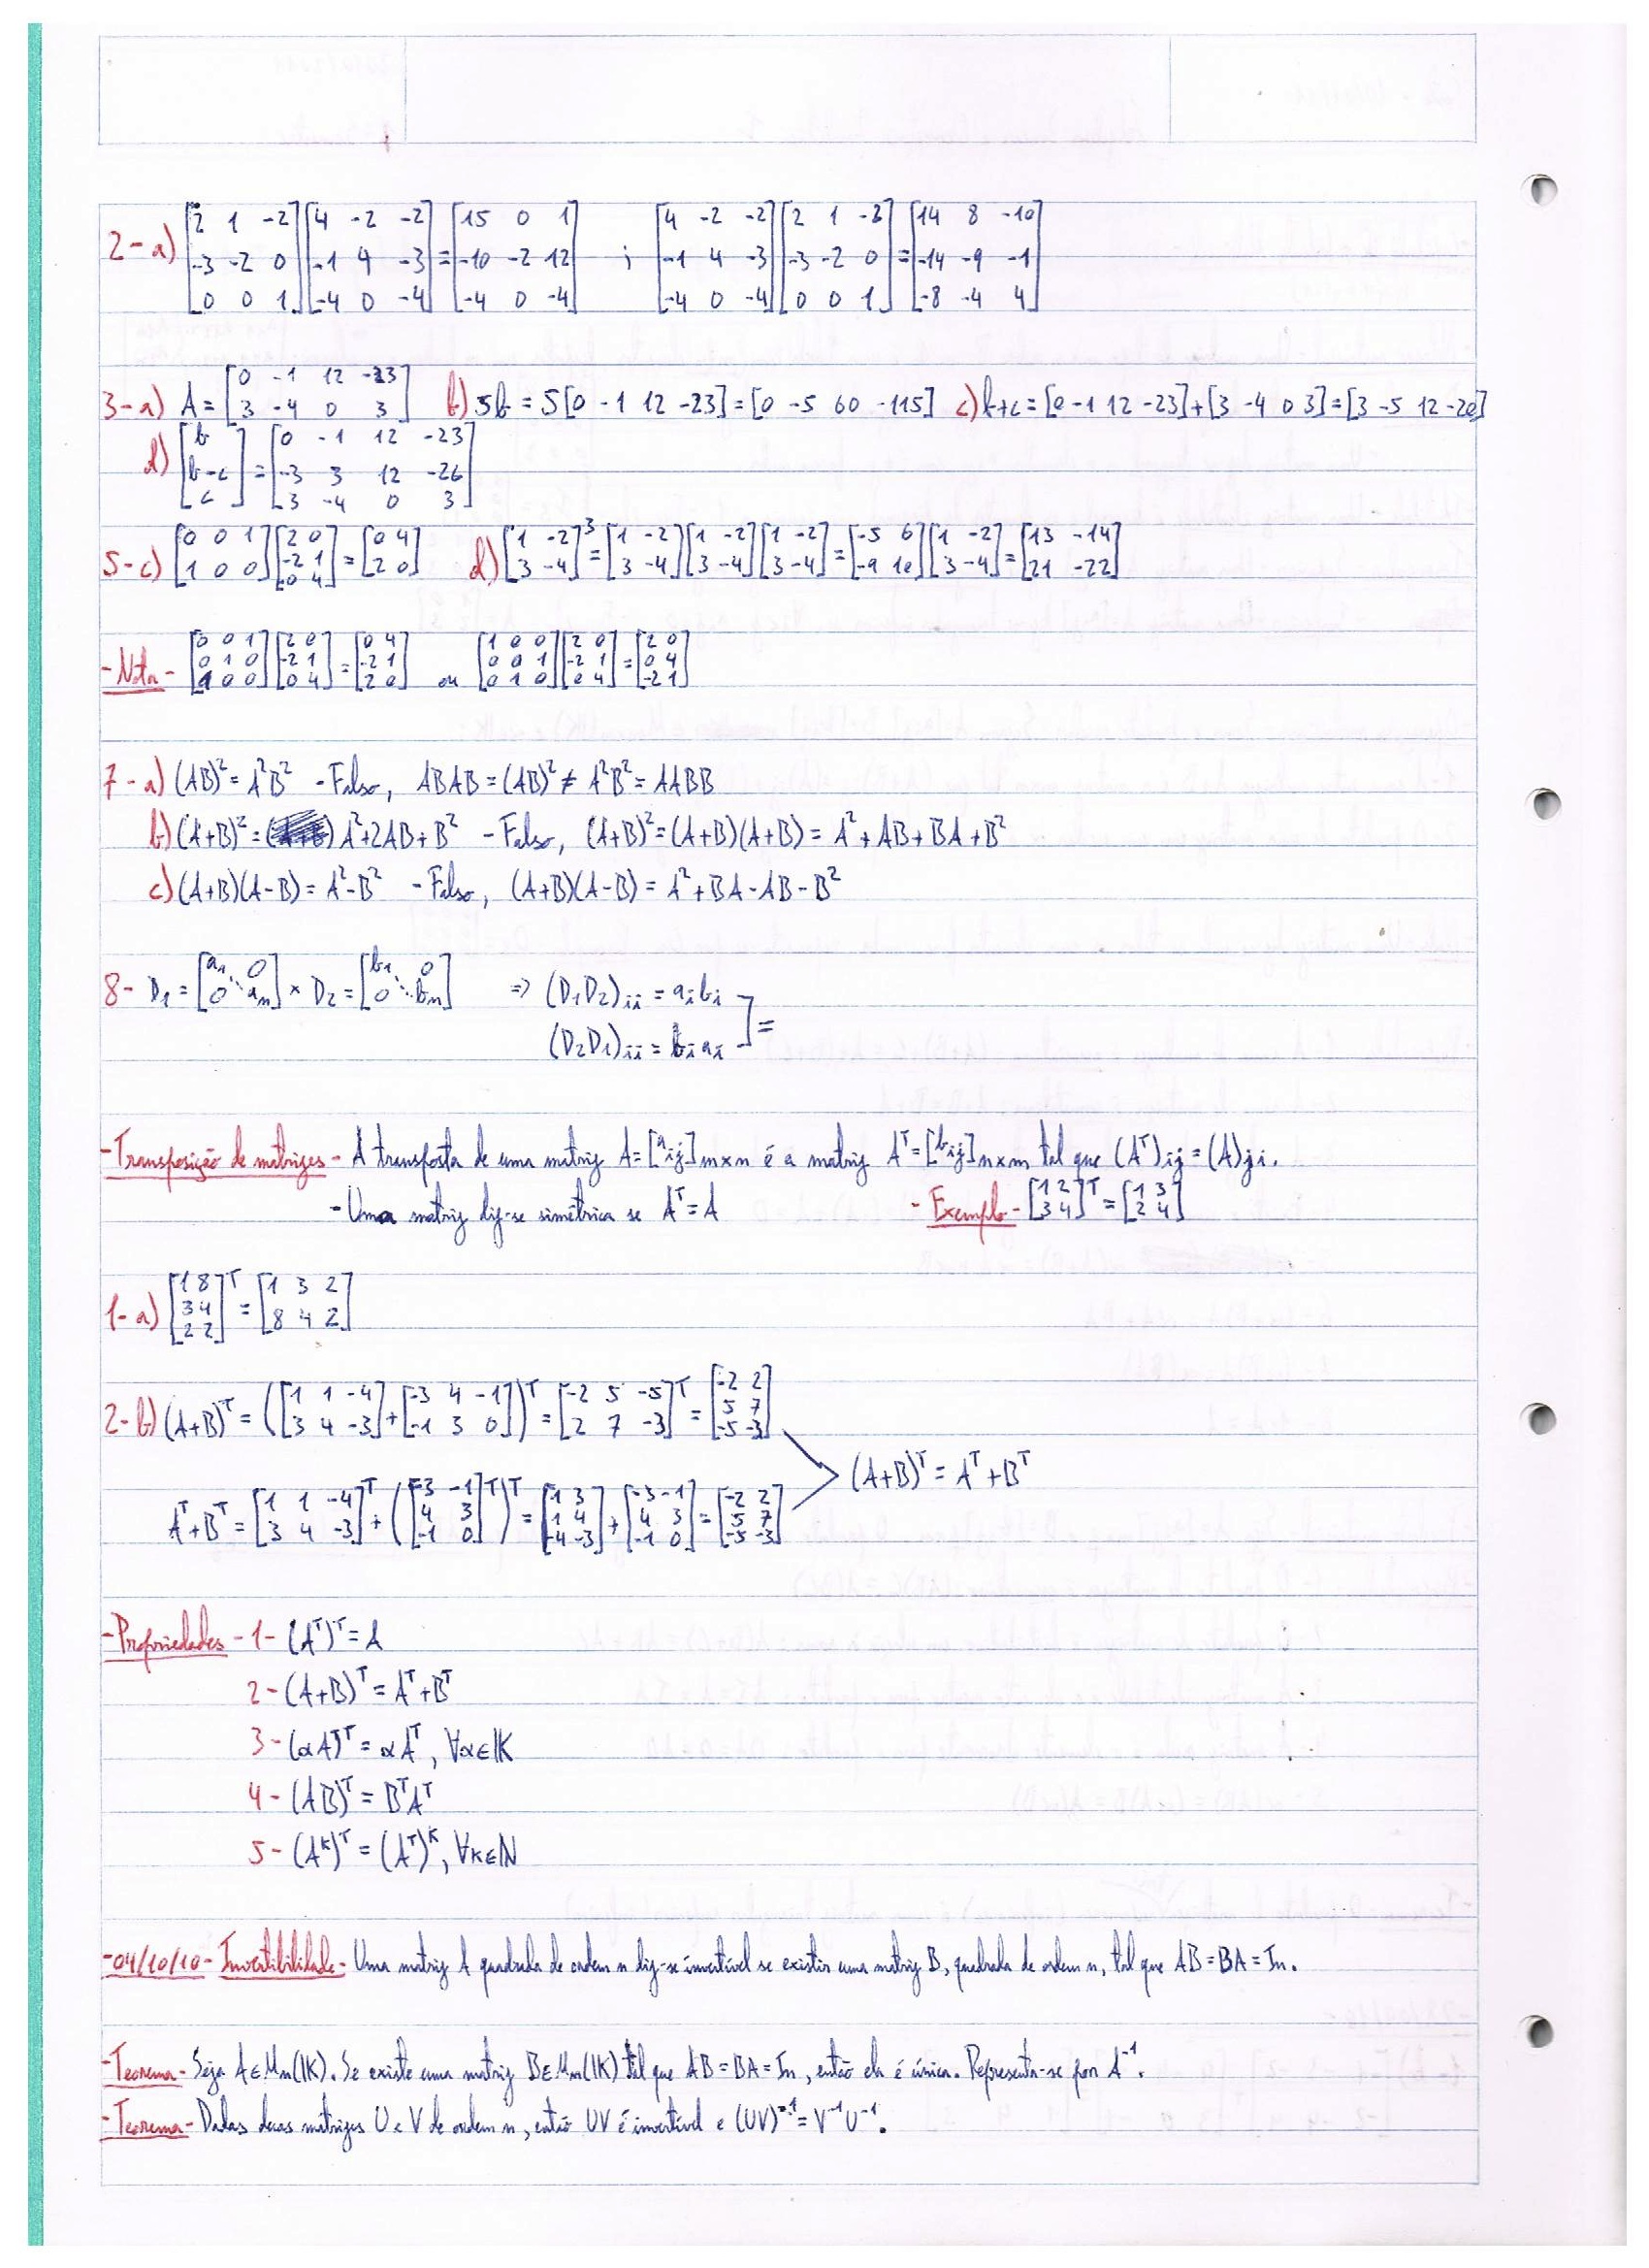 2-a) [2 1 -2; -3 -2 0; 0 0 1][4 -2 -2; -1 4 -3; -4 0 -4] = [15 0 1; -10 -2 12; -4 0 -4] ; [4 -2 -2; -1 4 -3; -4 0 -4][2 1 -2; -3 -2 0; 0 0 1] = [14 8 -10; -14 -9 -1; -8 -4 4]
3-a) A = [0 -1 12 -23; 3 -4 0 3] b) 5b = 5[0 -1 12 -23] = [0 -5 60 -115] c) b+c = [0 -1 12 -23]+[3 -4 0 3] = [3 -5 12 -20]
d) [b; b-c; c] = [0 -1 12 -23; -3 3 12 -26; 3 -4 0 3]
5-c) [0 0 1; 1 0 0][2 0; -2 1; 0 4] = [0 4; 2 0] d) [1 -2; 3 -4]³ = [1 -2; 3 -4][1 -2; 3 -4][1 -2; 3 -4] = [-5 6; -9 10][1 -2; 3 -4] = [13 -14; 21 -22]
-Nota- [0 0 1; 0 1 0; 1 0 0][2 0; -2 1; 0 4] = [0 4; -2 1; 2 0] ou [1 0 0; 0 0 1; 0 1 0][2 0; -2 1; 0 4] = [2 0; 0 4; -2 1]
7-a) (AB)² = A²B² - Falso, ABAB = (AB)² ≠ A²B² = AABB
b) (A+B)² = A²+2AB+B² - Falso, (A+B)² = (A+B)(A+B) = A²+AB+BA+B²
c) (A+B)(A-B) = A²-B² - Falso, (A+B)(A-B) = A²+BA-AB-B²
8- D₁ = [a₁ 0; ⋱; 0 aₙ] × D₂ = [b₁ 0; ⋱; 0 bₙ] => (D₁D₂)ii = aibi
(D₂D₁)ii = biai ] =
-Transposição de matrizes- A transposta de uma matriz A = [aij]m×n é a matriz Aᵀ = [bij]n×m tal que (Aᵀ)ij = (A)ji.
- Uma matriz diz-se simétrica se Aᵀ = A - Exemplo- [1 2; 3 4]ᵀ = [1 3; 2 4]
1-a) [1 8; 3 4; 2 2]ᵀ = [1 3 2; 8 4 2]
2-b) (A+B)ᵀ = ([1 1 -4; 3 4 -3]+[-3 4 -1; -1 3 0])ᵀ = [-2 5 -5; 2 7 -3]ᵀ = [-2 2; 5 7; -5 -3]
(A+B)ᵀ = Aᵀ+Bᵀ
Aᵀ+Bᵀ = [1 1 -4; 3 4 -3]ᵀ + ([-3 -1; 4 3; -1 0]ᵀ)ᵀ = [1 3; 1 4; -4 -3]+[-3 -1; 4 3; -1 0] = [-2 2; 5 7; -5 -3]
-Propriedades- 1- (Aᵀ)ᵀ = A
2- (A+B)ᵀ = Aᵀ+Bᵀ
3- (αA)ᵀ = αAᵀ, ∀α∈IK
4- (AB)ᵀ = BᵀAᵀ
5- (Aᵏ)ᵀ = (Aᵀ)ᵏ, ∀k∈ℕ
-04/10/10- Invertibilidade- Uma matriz A quadrada de ordem n diz-se invertível se existir uma matriz B, quadrada de ordem n, tal que AB = BA = In.
-Teorema- Seja A∈Mn(IK). Se existe uma matriz B∈Mn(IK) tal que AB = BA = In, então ela é única. Representa-se por A⁻¹.
-Teorema- Dadas duas matrizes U e V de ordem n, então UV é invertível e (UV)⁻¹ = V⁻¹U⁻¹.